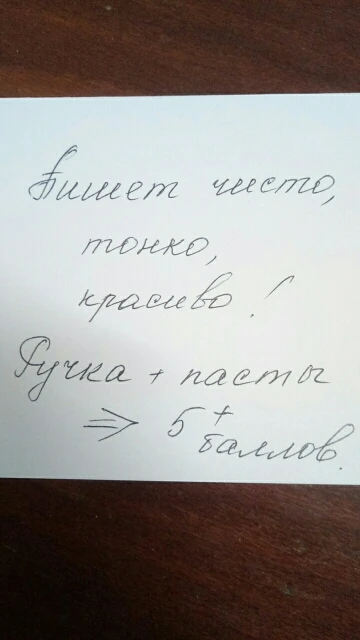 Пишет чисто,
тонко,
красиво!
Ручка + пасты
⇒ 5+
баллов.